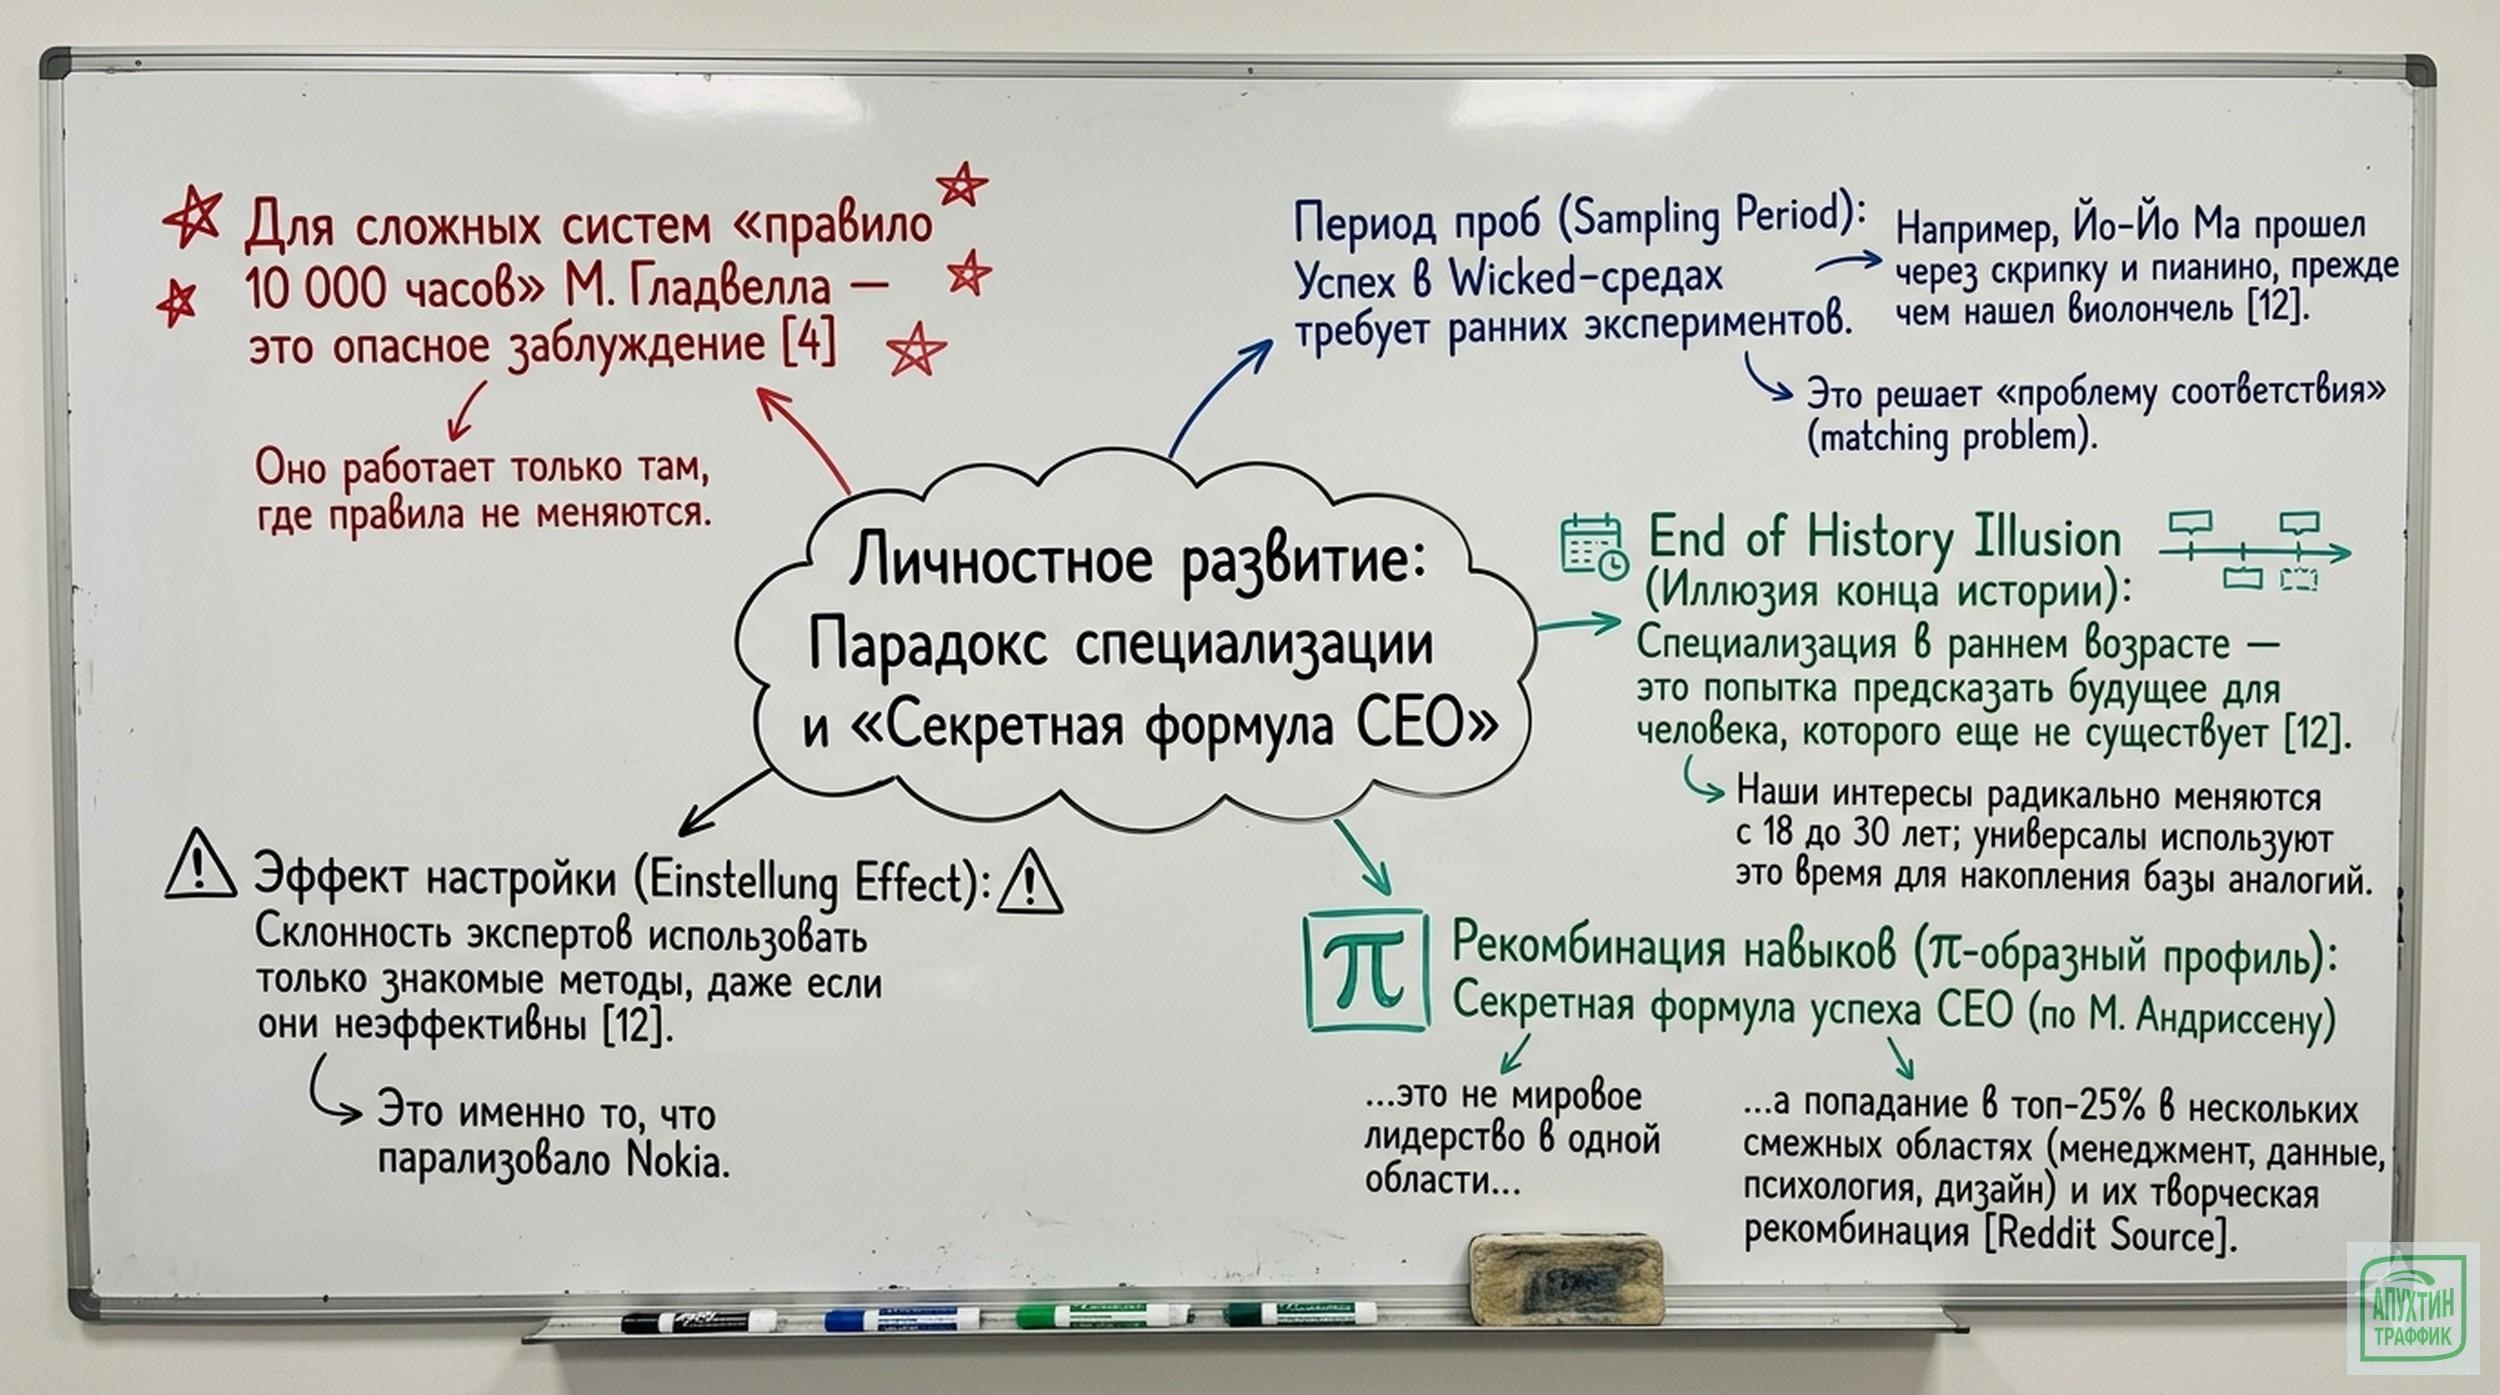 Для сложных систем «правило
10 000 часов» М. Гладвелла —
это опасное заблуждение [4]
Оно работает только там,
где правила не меняются.
Период проб (Sampling Period):
Успех в Wicked-средах
требует ранних экспериментов.
Например, Йо-Йо Ма прошел
через скрипку и пианино, прежде
чем нашел виолончель [12].
Это решает «проблему соответствия»
(matching problem).
Личностное развитие:
Парадокс специализации
и «Секретная формула CEO»
End of History Illusion
(Иллюзия конца истории):
Специализация в раннем возрасте —
это попытка предсказать будущее для
человека, которого еще не существует [12].
Наши интересы радикально меняются
с 18 до 30 лет; универсалы используют
это время для накопления базы аналогий.
Эффект настройки (Einstellung Effect):
Склонность экспертов использовать
только знакомые методы, даже если
они неэффективны [12].
Это именно то, что
парализовало Nokia.
π
Рекомбинация навыков (π-образный профиль):
Секретная формула успеха CEO (по М. Андриссену)
...это не мировое
лидерство в одной
области...
...а попадание в топ-25% в нескольких
смежных областях (менеджмент, данные,
психология, дизайн) и их творческая
рекомбинация [Reddit Source].
АПУХТИН
ТРАФФИК